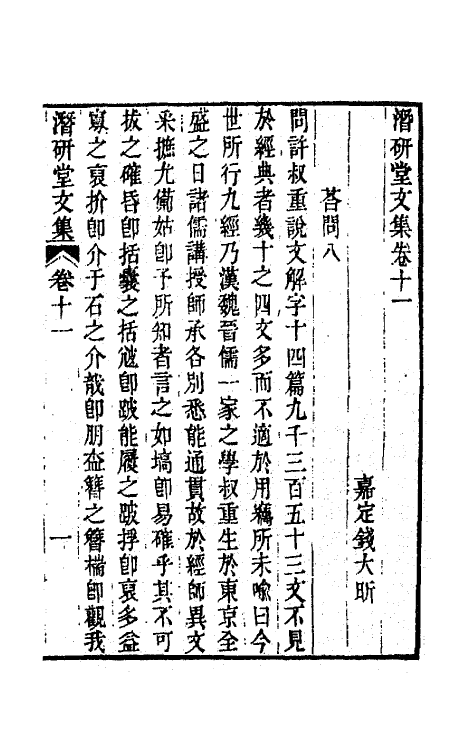 潛研堂文集卷十一
嘉定錢大昕
荅問八
問許叔重說文解字十四篇九千三百五十三文不見
於經典者幾十之四文多而不適於用竊所未喻曰今
世所行九經乃漢魏晉儒一家之學叔重生於東京全
盛之日諸儒講授師承各別悉能通貫故於經師異文
采摭尤備姑卽予所知者言之如塙卽易確乎其不可
拔之確昏卽括囊之括卽跛能履之跛捊卽裒多益
寡之裒扴卽介于石之介戠卽朋盍簪之簪椯卽觀我
潛研堂文集 卷十一 一